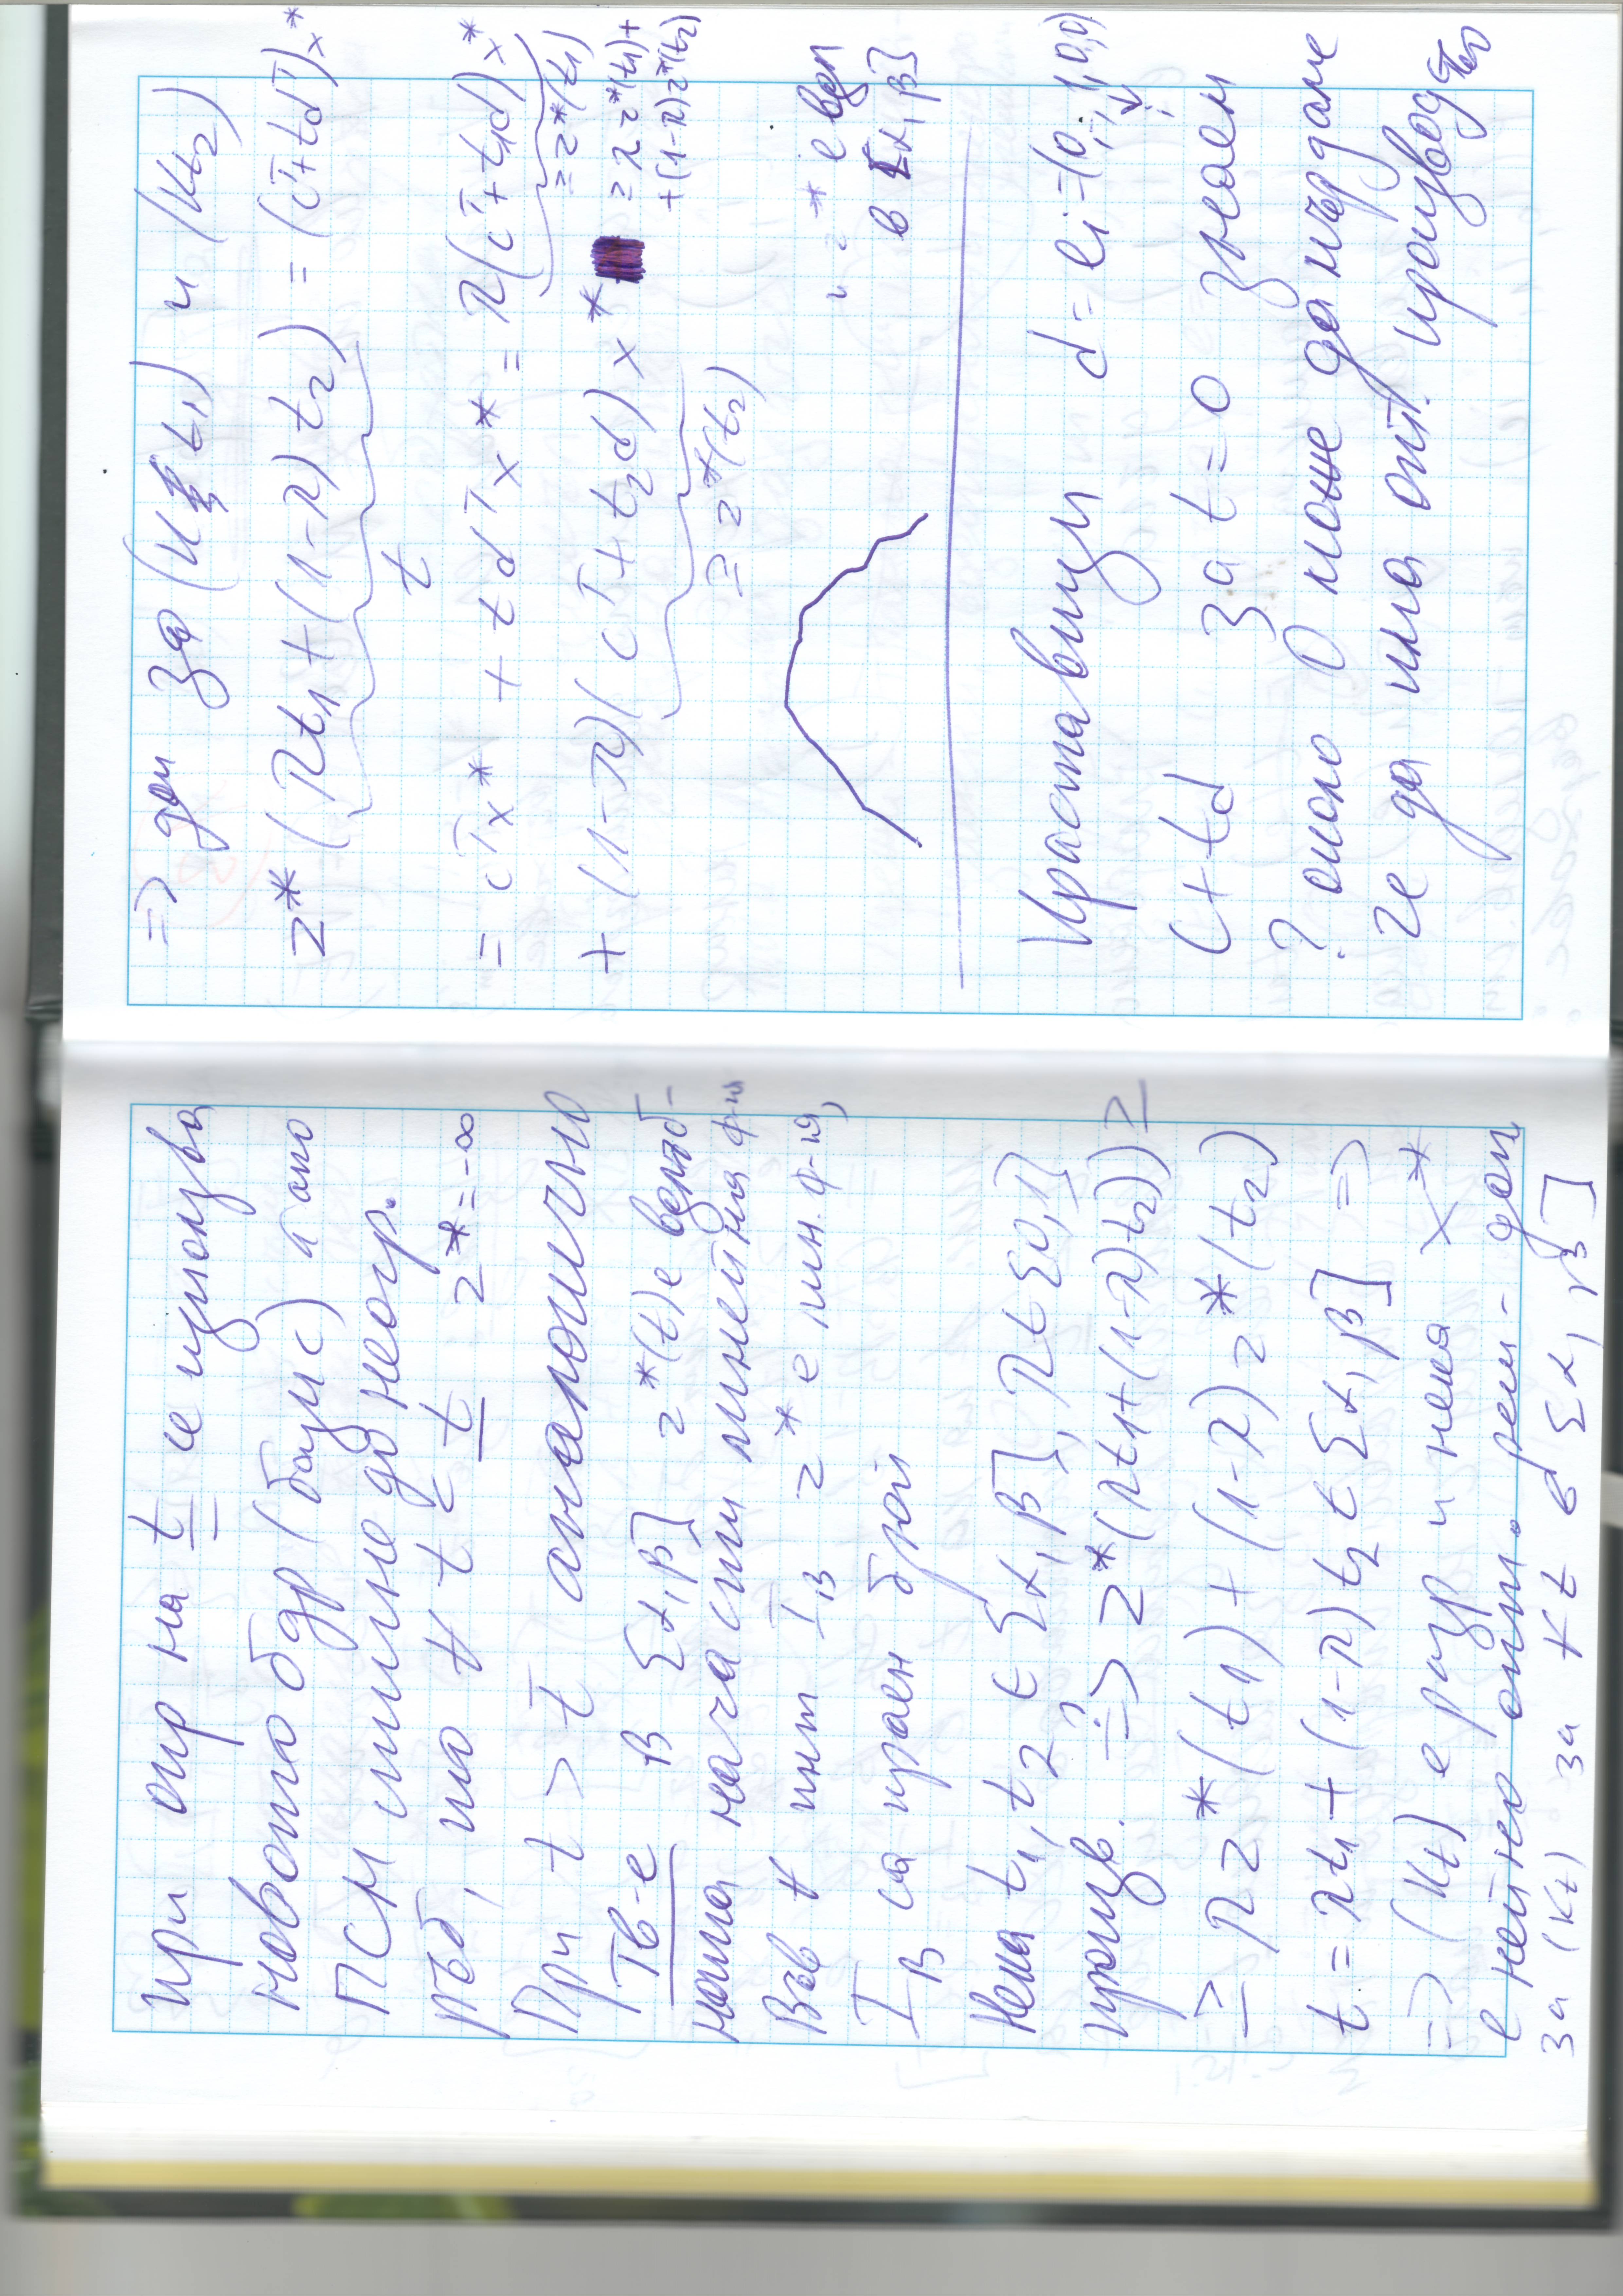 при опр на t се използва
новото б др (базис) ако
ПСМ спипне до неогр.
реб, то ∀ t < t z* = -∞
При t > t̄ аналогично
Тв-е В [α, β] z*(t) е вдлъб-
ната начасти линейна ф-ия
Във ∀ инт I_B z* е лин. ф-ия,
I_B са краен брой
Нека t₁, t₂ ∈ [α, β], λ ∈ [0,1]
произв. ?=> z*(λt₁+(1-λ)t₂) ≥
≥ λ z*(t₁) + (1-λ) z*(t₂)
t = λt₁ + (1-λ)t₂ ∈ [α, β] =>
=> (K_t) е разр и нека x*
е нейно опт. реш - доп
за (K_t) за ∀ t ∈ [α, β]
=> доп за (K_t₁) и (K_t₂)
z*(λt₁+(1-λ)t₂) = (cᵀ+tdᵀ)x*
t
= cᵀx* + tdᵀx* = λ(cᵀ+t₁d)x*
= z*(t₁)
+ (1-λ)(cᵀ+t₂d)x* = λz*(t₁)+
+(1-λ)z*(t₂)
= z*(t₂)
z* е вдл
в [α, β]
d = eᵢ = (0..,1,0,0)
i
c+td за t=0 знаем
? около 0 може да мърдаме
че да има опт. производство